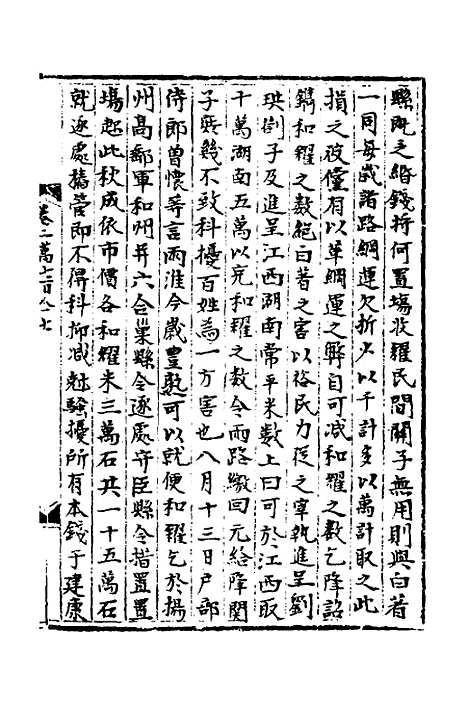 縣既乏緡錢將何置場收糴民間關子無用則與白著
一同每歲諸路綱運欠折少以千計多以萬計取之此
損之彼僅有以革綱運之弊自可减和糴之數乞降詔
鐫和糴之數絕白著之害以裕民力從之宰執進呈劉
珙劄子及進呈江西湖南常平米數上曰可於江西取
十萬湖南五萬以充和糴之數令兩路繳回元給降關
子庶幾不致科擾百姓為一方害也八月十三日戶部
侍郎曾懷等言兩淮今歲豐熟可以就便和糴乞於揚
州高郵軍和州并六合巢縣令逐處守臣縣令措置置
場趂此秋成依市價各和糴米三萬石共一十五萬石
就逐處樁管即不得科抑减尅騷擾所有本錢于建康
卷二萬七百八十七